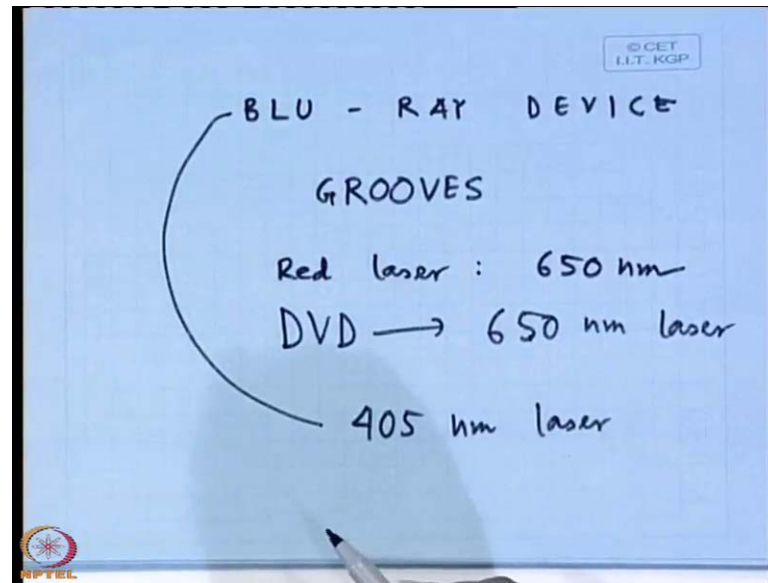 © CET
I.I.T. KGP
BLU - RAY DEVICE
GROOVES
Red laser : 650 nm
DVD → 650 nm laser
405 nm laser
NPTEL